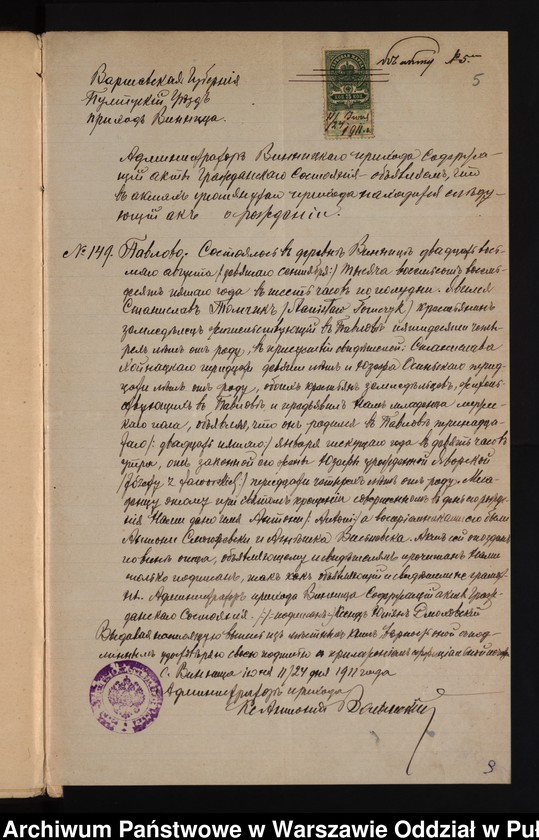 Варшавская Губернія
Пултускій Уѣздъ
приходъ Винница.
къ акту № 5.
5
11/24 Іюня
1911 г.
Администраторъ Винницкаго прихода Содержа-
щій акты Гражданскаго Состоянія объявляетъ, что
въ актахъ упомянутаго прихода находится слѣду-
ющій актъ о рожденіи.
№ 149. Павлово. Состоялось въ деревнѣ Винницѣ двадцать восъ-
маго августа /:девятаго сентября:/ тысяча восемьсотъ восемь-
десятъ пятаго года въ шесть часовъ по полудни. Явился
Станиславъ Томчикъ /Stanisław Tomczyk/ крестьянинъ
земледѣлецъ жительствующій въ Павловѣ пятидесяти четы-
рехъ лѣтъ отъ роду, въ присутствіи свидѣтелей: Станислава
Хойнацкаго тридцати девяти лѣтъ и Юзефа Осинскаго трид-
цати лѣтъ отъ роду, обоихъ крестьянъ земледѣльцевъ, житель-
ствующихъ въ Павловѣ и предъявилъ Намъ младенца мужес-
каго пола, объявляя, что онъ родился въ Павловѣ тринадца-
таго /: двадцать пятаго:/ января текущаго года въ девять часовъ
утра, отъ законной его жены Юзефы урожденной Яворской
/: тридцати четырехъ лѣтъ отъ роду. Мла-
денцу оному при святомъ крещеніи совершенномъ въ день рожде-
нія Нами дано имя Антоній /: Antoni:/ а воспріемниками его были
Антоній и Антонина. Актъ сей опозданъ
по винѣ отца, объявляющему и свидѣтелямъ прочитанъ Нами
только подписанъ, такъ какъ объявляющій и свидѣтели неграмот-
ны. Администраторъ прихода Винница Содержащій акты Граж-
данскаго Состоянія. /:/ подписалъ:/ Ксендзъ Юліанъ
Выдавая настоящую выпись изъ метрическихъ книгъ вѣрность оной съ под-
линнымъ удостовѣряю своею подписью и приложеніемъ
С. Винница Іюня 11/24 дня 1911 года
Администраторъ прихода
Кс Антоній
9
Archiwum Państwowe w Warszawie Oddział w Puł